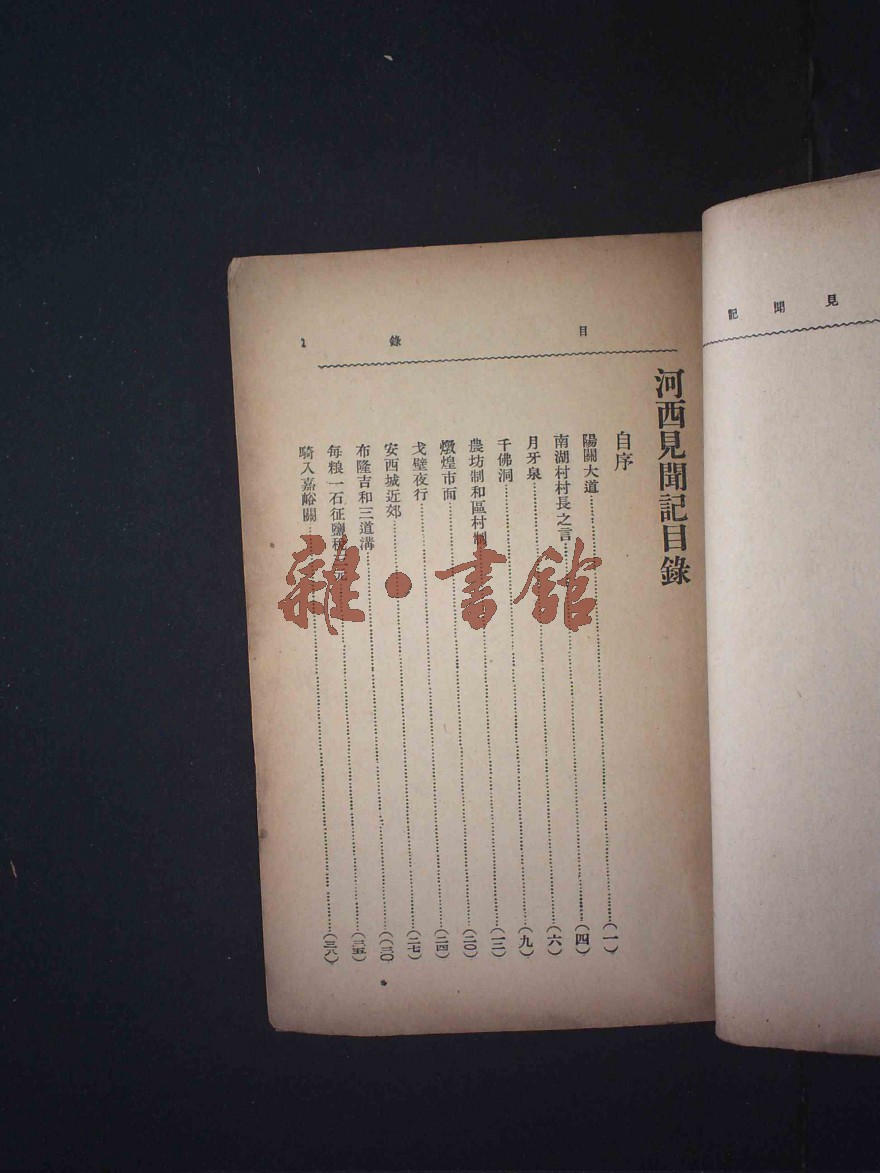 見聞記
目錄 1
河西見聞記目錄
自序
陽關大道……(一)
南湖村村長之言……(四)
月牙泉……(六)
千佛洞……(九)
農坊制和區村制……(一三)
燉煌市面……(二〇)
戈壁夜行……(二四)
安西城近郊……(二七)
布隆吉和三道溝……(三〇)
每粮一石征鹽稅……(三五)
騎入嘉峪關……(三八)
雜·書館